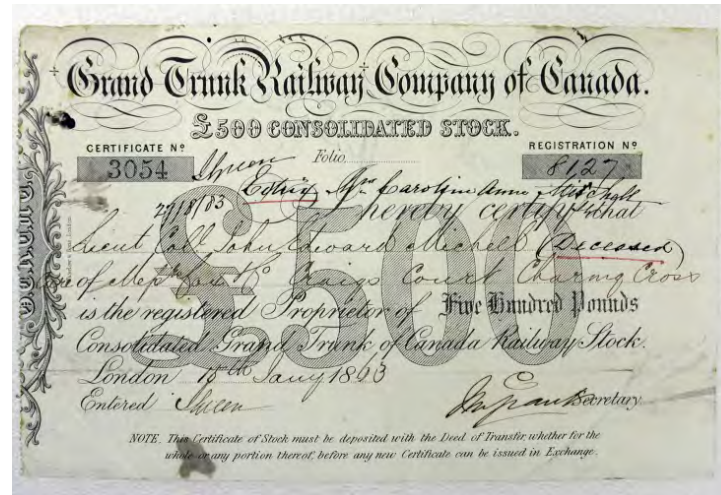 Grand Trunk Railway Company of Canada.
£500 CONSOLIDATED STOCK.
CERTIFICATE Nº
REGISTRATION Nº
3054
Folio
8127
Mrs Caroline Anne Mitchell
27/8/83
hereby certify that
Lieut Coll John Edward Michell (Deceased)
of Craigs Court Charing Cross
is the registered Proprietor of Five Hundred Pounds
Consolidated Grand Trunk of Canada Railway Stock.
London 15th Jany 1863
Entered
Secretary
£500
NOTE. This Certificate of Stock must be deposited with the Deed of Transfer, whether for the
whole or any portion thereof, before any new Certificate can be issued in Exchange.